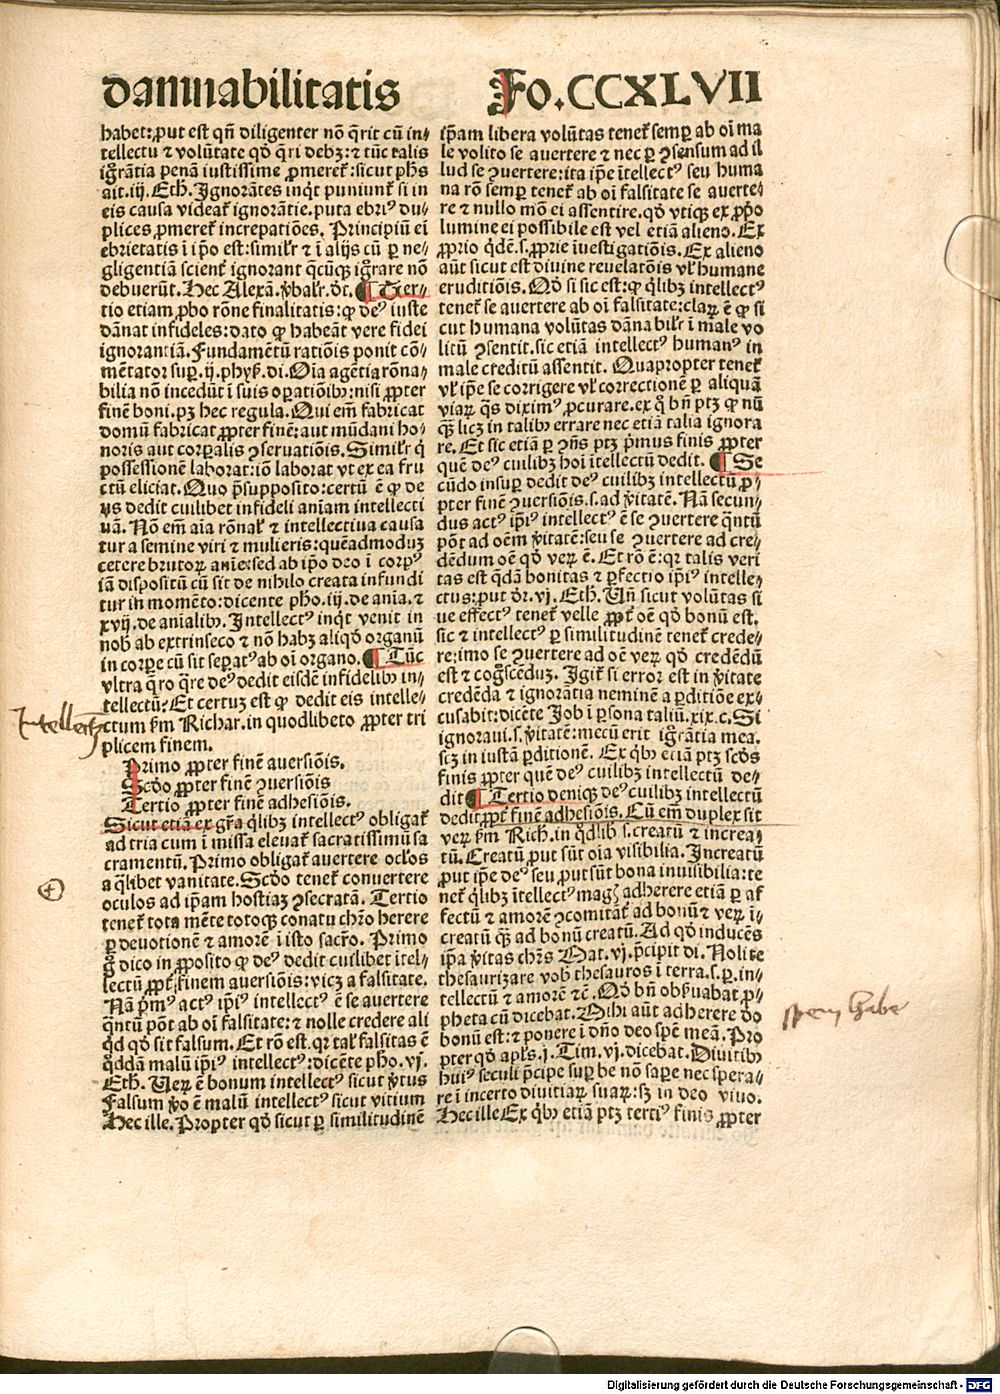 damnabilitatis Fo.CCXLVII
habet: ꝓut est qñ diligenter nõ q̃rit cũ in⸗
tellectu ⁊ volũtate qđ q̃ri debꝫ: ⁊ tũc talis
igñrãtia penã iustissime ꝓmeret᷑: sicut phs
ait. iij. Eth. Ignorãtes inqt puniunt᷑ si in
eis causa videat᷑ ignorãtie. puta ebriꝰ du⸗
plices ꝓmeret᷑ increpatiões. Principiũ eĩ
ebrietatis ĩ ipõ est: simil'r ⁊ ĩ alijs cũ ꝑ ne⸗
gligentiã scient᷑ ignorant q̃cũqꝫ igñrare nõ
debuerũt. Hec Alexã. v̾bal'r. õr. ¶ Ter⸗
tio etiam ꝓbo rõne finalitatis: ꝙ deꝰ iuste
dãnat infideles: dato ꝙ habeãt vere fidei
ignorantiã. Fundamẽtũ ratiõis ponit cõ⸗
mẽtator suꝑ. ij. phyſ. di. Oĩa agẽtia rõna⸗
bilia nõ incedũt ĩ suis oꝑatiõibꝫ: nisi ꝓpter
finẽ boni. pꝫ hec regula. Qui em̃ fabricat
domũ fabricat ꝓpter finẽ: aut mũdani ho⸗
noris aut corꝑalis ꝯseruatiõis. Simil'r q̇
possessionẽ laborat: iõ laborat vt ex ea fru
ctũ eliciat. Quo p̃supposito: certũ ẽ ꝙ de
us dedit cuilibet infideli aniam intellecti
uã. Nõ em̃ aĩa rõnal' ⁊ intellectiua causa
tur a semine viri ⁊ mulieris: quẽadmodũ
cetere brutoꝝ anie: sed ab ipõ deo ĩ corpꝰ
iã dispositũ cũ sit de nihilo creata infundi
tur in momẽto: dicente pho. iij. de ania. ⁊
xvij. de anialibꝫ. Intellectꝰ inqt venit in
nob̃ ab extrinseco ⁊ nõ habꝫ aliqđ organũ
in corꝑe cũ sit seꝑatꝰ ab oĩ organo. ¶ Tũc
vltra q̃ro q̃re deꝰ dedit eisdẽ infidelibꝫ in⸗
tellectũ? Et certuꝫ est ꝙ dedit eis intelle⸗
ctum ẜm Richar. in quodlibeto ꝓpter tri
plicem finem.
Primo ꝓpter finẽ auersiõis.
Scđo ꝓpter finẽ ꝯuersiõis
Tertio ꝓpter finẽ adhesiõis.
Sicut etiã ex gr̃a q̃libꝫ intellectꝰ obligat᷑
ad tria cum ĩ missa eleuat᷑ sacratissimũ sa
cramentũ. Primo obligat᷑ auertere ocl'os
a q̃libet vanitate. Scđo tenet᷑ conuertere
oculos ad ip̃am hostiaꝫ ꝯsecratã. Tertio
tenet᷑ tota mẽte totoqꝫ conatu chr̃o herere
ꝑ deuotionẽ ⁊ amorẽ ĩ isto sacr̃o. Primo
g̊ dico in ꝓposito ꝙ deꝰ dedit cuilibet ĩtel⸗
lectũ ꝓpt᷑ finem auersiõis: vicꝫ a falsitate.
Nã p̃mꝰ actꝰ ip̃iꝰ intellectꝰ ẽ se auertere
q̃ntũ põt ab oĩ falsitate: ⁊ nolle credere ali
qđ qđ sit falsum. Et rõ est. qꝛ tal' falsitas ẽ
q̃dam malũ ip̃iꝰ intellectꝰ: dicẽte pho. vj.
Eth. Veꝝ ẽ bonum intellectꝰ sicut v̾tus
Falsum v̾o ẽ malũ intellectꝰ sicut vitium
Hec ille. Propter qđ sicut ꝑ similitudinẽ
ip̃am libera volũtas tenet᷑ semꝑ ab oĩ ma
le volito se auertere ⁊ nec ꝑ ꝯsensum ad il
lud se ꝯuertere: ita ip̃e ĩtellectꝰ seu huma
na rõ semꝑ tenet᷑ ab oĩ falsitate se auerte⸗
re ⁊ nullo mõ ei assentire. qđ vtiqꝫ ex ꝓpo
lumine ei possibile est vel etiã alieno. Ex
ꝓprio qdẽ. s. ꝓprie ĩuestigatiõis. Ex alieno
aũt sicut est diuine reuelatõis vl' humane
eruditiõis. Qđ si sic est: ꝙ q̃libꝫ intellectꝰ
tenet᷑ se auertere ab oĩ falsitate: claꝝ ẽ ꝙ si
cut humana volũtas dãnabil'r ĩ male vo
litũ ꝯsentit. sic etiã intellectꝰ humanꝰ in
male creditũ assentit. Quapropter tenet᷑
vl' ip̃e se corrigere vl' correctionẽ ꝑ aliquã
viaꝝ q̃s diximꝰ ꝓcurare. ex q̊ bñ ptꝫ ꝙ nũ
q̃ꝫ licꝫ in talibꝫ errare nec etiã talia ignora
re. Et sic etiã ꝑ ꝯñs ptꝫ p̃mus finis ꝓpter
quẽ deꝰ cuilibꝫ hoĩ ĩtellectũ dedit. ¶ Se
cũdo insuꝑ dedit deꝰ cuilibꝫ intellectũ ꝓ⸗
pter finẽ ꝯuersiõis. s. ad v̾itatẽ. Nã secun⸗
dus actꝰ ip̃iꝰ intellectꝰ ẽ se ꝯuertere q̃ntũ
põt ad oẽm v̾itatẽ: seu se ꝯuertere ad cre⸗
dẽdum oẽ qđ veꝝ ẽ. Et rõ ẽ: qꝛ talis veri
tas est q̃dã bonitas ⁊ ꝑfectio ip̃iꝰ intelle⸗
ctus: ꝓut õr. vj. Eth. Vñ sicut volũtas si
ue effectꝰ tenet᷑ velle ꝓpt᷑ oẽ qđ bonũ est.
sic ⁊ intellectꝰ ꝑ similitudinẽ tenet᷑ crede⸗
re: imo se ꝯuertere ad oẽ veꝝ qđ credẽdũ
est ⁊ cog̃scẽduꝫ. Igit᷑ si error est in v̾itate
credẽda ⁊ ignorãtia neminẽ a ꝑditiõe ex⸗
cusabit: dicẽte Job ĩ ꝑsona taliũ. xix. c. Si
ignoraui. s. v̾itatẽ: mecũ erit igñrãtia mea.
scꝫ in iustã ꝑditionẽ. Ex q̇bꝫ etiã ptꝫ scđs
finis ꝓpter quẽ deꝰ cuilibꝫ intellectũ de⸗
dit ¶ Tertio deniqꝫ deꝰ cuilibꝫ intellectũ
dedit ꝓpt᷑ finẽ adhesiõis. Cũ em̃ duplex sit
veꝝ ẜm Rich. in qđlib̃ s. creatũ ⁊ increa⸗
tũ. Creatũ ꝓut sũt oĩa visibilia. Increatũ
ꝓut ip̃e deꝰ seu ꝓut sũt bona inuisibilia: te
net᷑ q̃libꝫ ĩtellectꝰ magꝭ adherere etiã ꝑ af
fectũ ⁊ amorẽ ꝯcomitãt᷑ ad bonũ ⁊ veꝝ ĩ⸗
creatũ q̃ꝫ ad bonũ creatũ. Ad qđ inducẽs
ip̃a v̾itas chr̃s Mat. vj. p̃cipit di. Nolite
thesaurizare vob̃ thesauros ĩ terra. s. ꝑ. in⸗
tellectũ ⁊ amorẽ ⁊c̃. Qđ bñ obẜuabat ꝓ⸗
pheta cũ dicebat. Mihi aũt adherere đo
bonũ est: ⁊ ponere ĩ dño deo spẽ meã. Pro
pter qđ apl's. j. Tim. vj. dicebat. Diuitibꝫ
huiꝰ seculi p̃cipe suꝑbe nõ saꝑe nec spera⸗
re ĩ incerto diuitiaꝝ suaꝝ: sꝫ in deo viuo.
Hec ille Ex q̇bꝫ etiã ptꝫ tertiꝰ finis ꝓpter
Digitalisierung gefördert durch die Deutsche Forschungsgemeinschaft - DFG